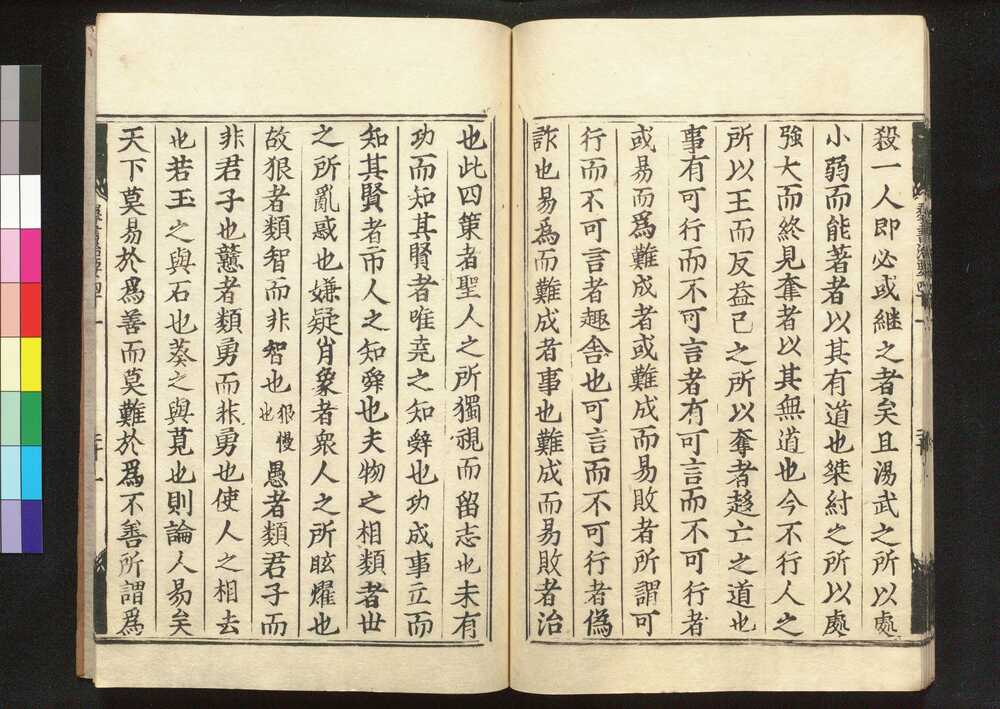 殺一人即必或継之者矣且湯武之所以處
小弱而能著者以其有道也桀紂之所以處
強大而終見奪者以其無道也今不行人之
所以王而反益己之所以奪者趍亡之道也
事有可行而不可言者有可言而不可行者
或易而爲難成者或難成而易敗者所謂可
行而不可言者趣舎也可言而不可行者偽
詐也易爲而難成者事也難成而易敗者治
也此四策者聖人之所獨視而留志也未有
功而知其賢者唯堯之知舜也功成事立而
知其賢者市人之知舜也夫物之相類者世
之所亂惑也嫌疑肖象者衆人之所眩燿也
故狠者類智而非智也狠慢也愚者類君子而
非君子也戇者類勇而非勇也使人之相去
也若玉之與石也葵之與莧也則論人易矣
天下莫易於爲善而莫難於爲不善所謂爲
群書治要四十一